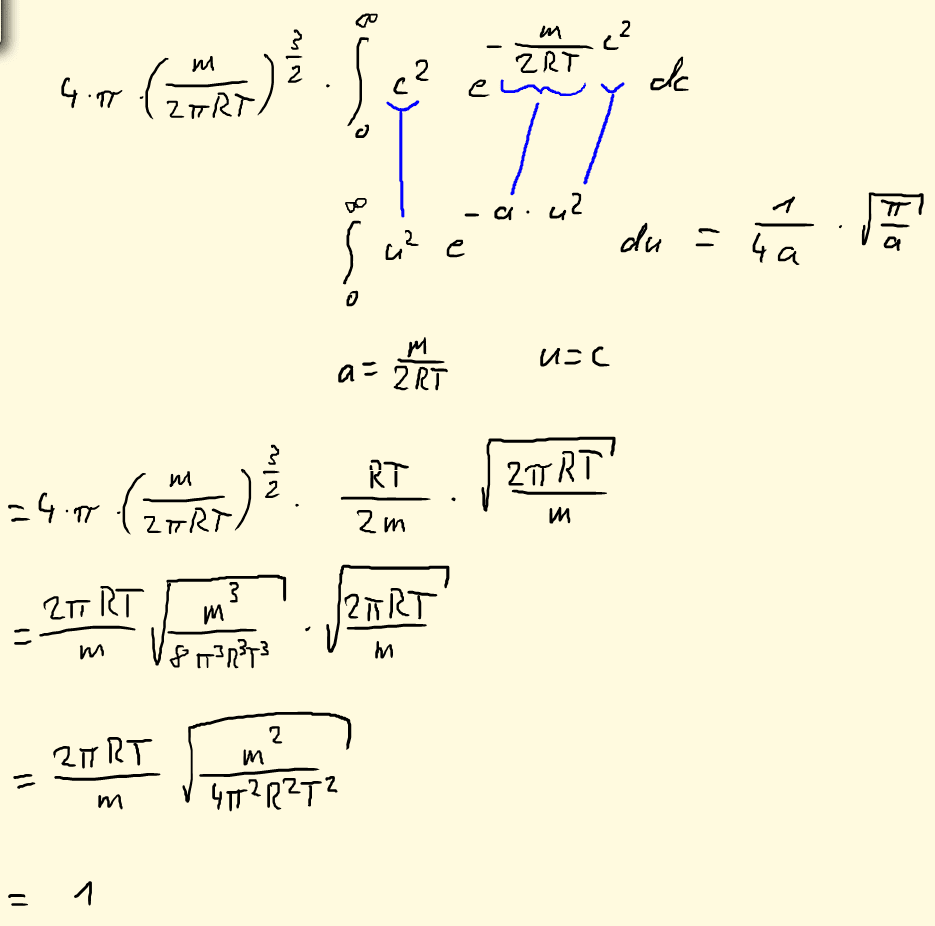 4·π·(m/(2πRT))^(3/2) · ∫₀^∞ c² e^(-(m/(2RT)) c²) dc
∫₀^∞ u² e^(-a·u²) du = 1/(4a) · √(π/a)
a = m/(2RT) u = c
= 4·π·(m/(2πRT))^(3/2) · RT/(2m) · √(2πRT/m)
= 2πRT/m √(m³/(8π³R³T³)) · √(2πRT/m)
= 2πRT/m √(m²/(4π²R²T²))
= 1